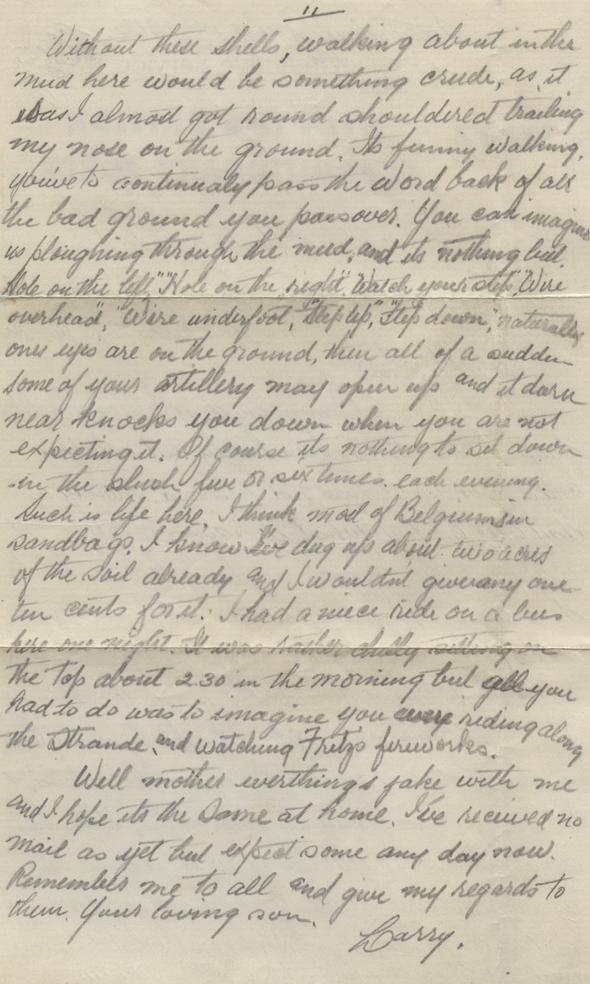 11
Without these shells, walking about in the
mud here would be something crude, as it
was I almost got round shouldered trailing
my nose on the ground. Its funny walking,
you've to continualy pass the word back of all
the bad ground you pass over. You can imagine
us ploughing through the mud, and its nothing but
"Hole on the left," "Hole on the right", "Watch your step", "Wire
overhead", "Wire underfoot", "Step up", "Step down", naturally
ones eyes are on the ground, then all of a sudden
some of your artillery may open up and it darn
near knocks you down when you are not
expecting it. Of course its nothing to sit down
in the slush five or six times each evening.
Such is life here. I think most of Belgium is in
sandbags. I know I've dug up about two acres
of the soil already and I wouldn't give any one
ten cents for it. I had a niece ride on a bus
here one night. It was rather chilly sitting on
the top about 2.30 in the morning but all you
had to do was to imagine you were riding along
the Strande, and watching Fritz's fireworks.
Well mother everthing's jake with me
and I hope its the same at home. I've received no
mail as yet but expect some any day now.
Remember me to all and give my regards to
them. Your loving son.
Larry.